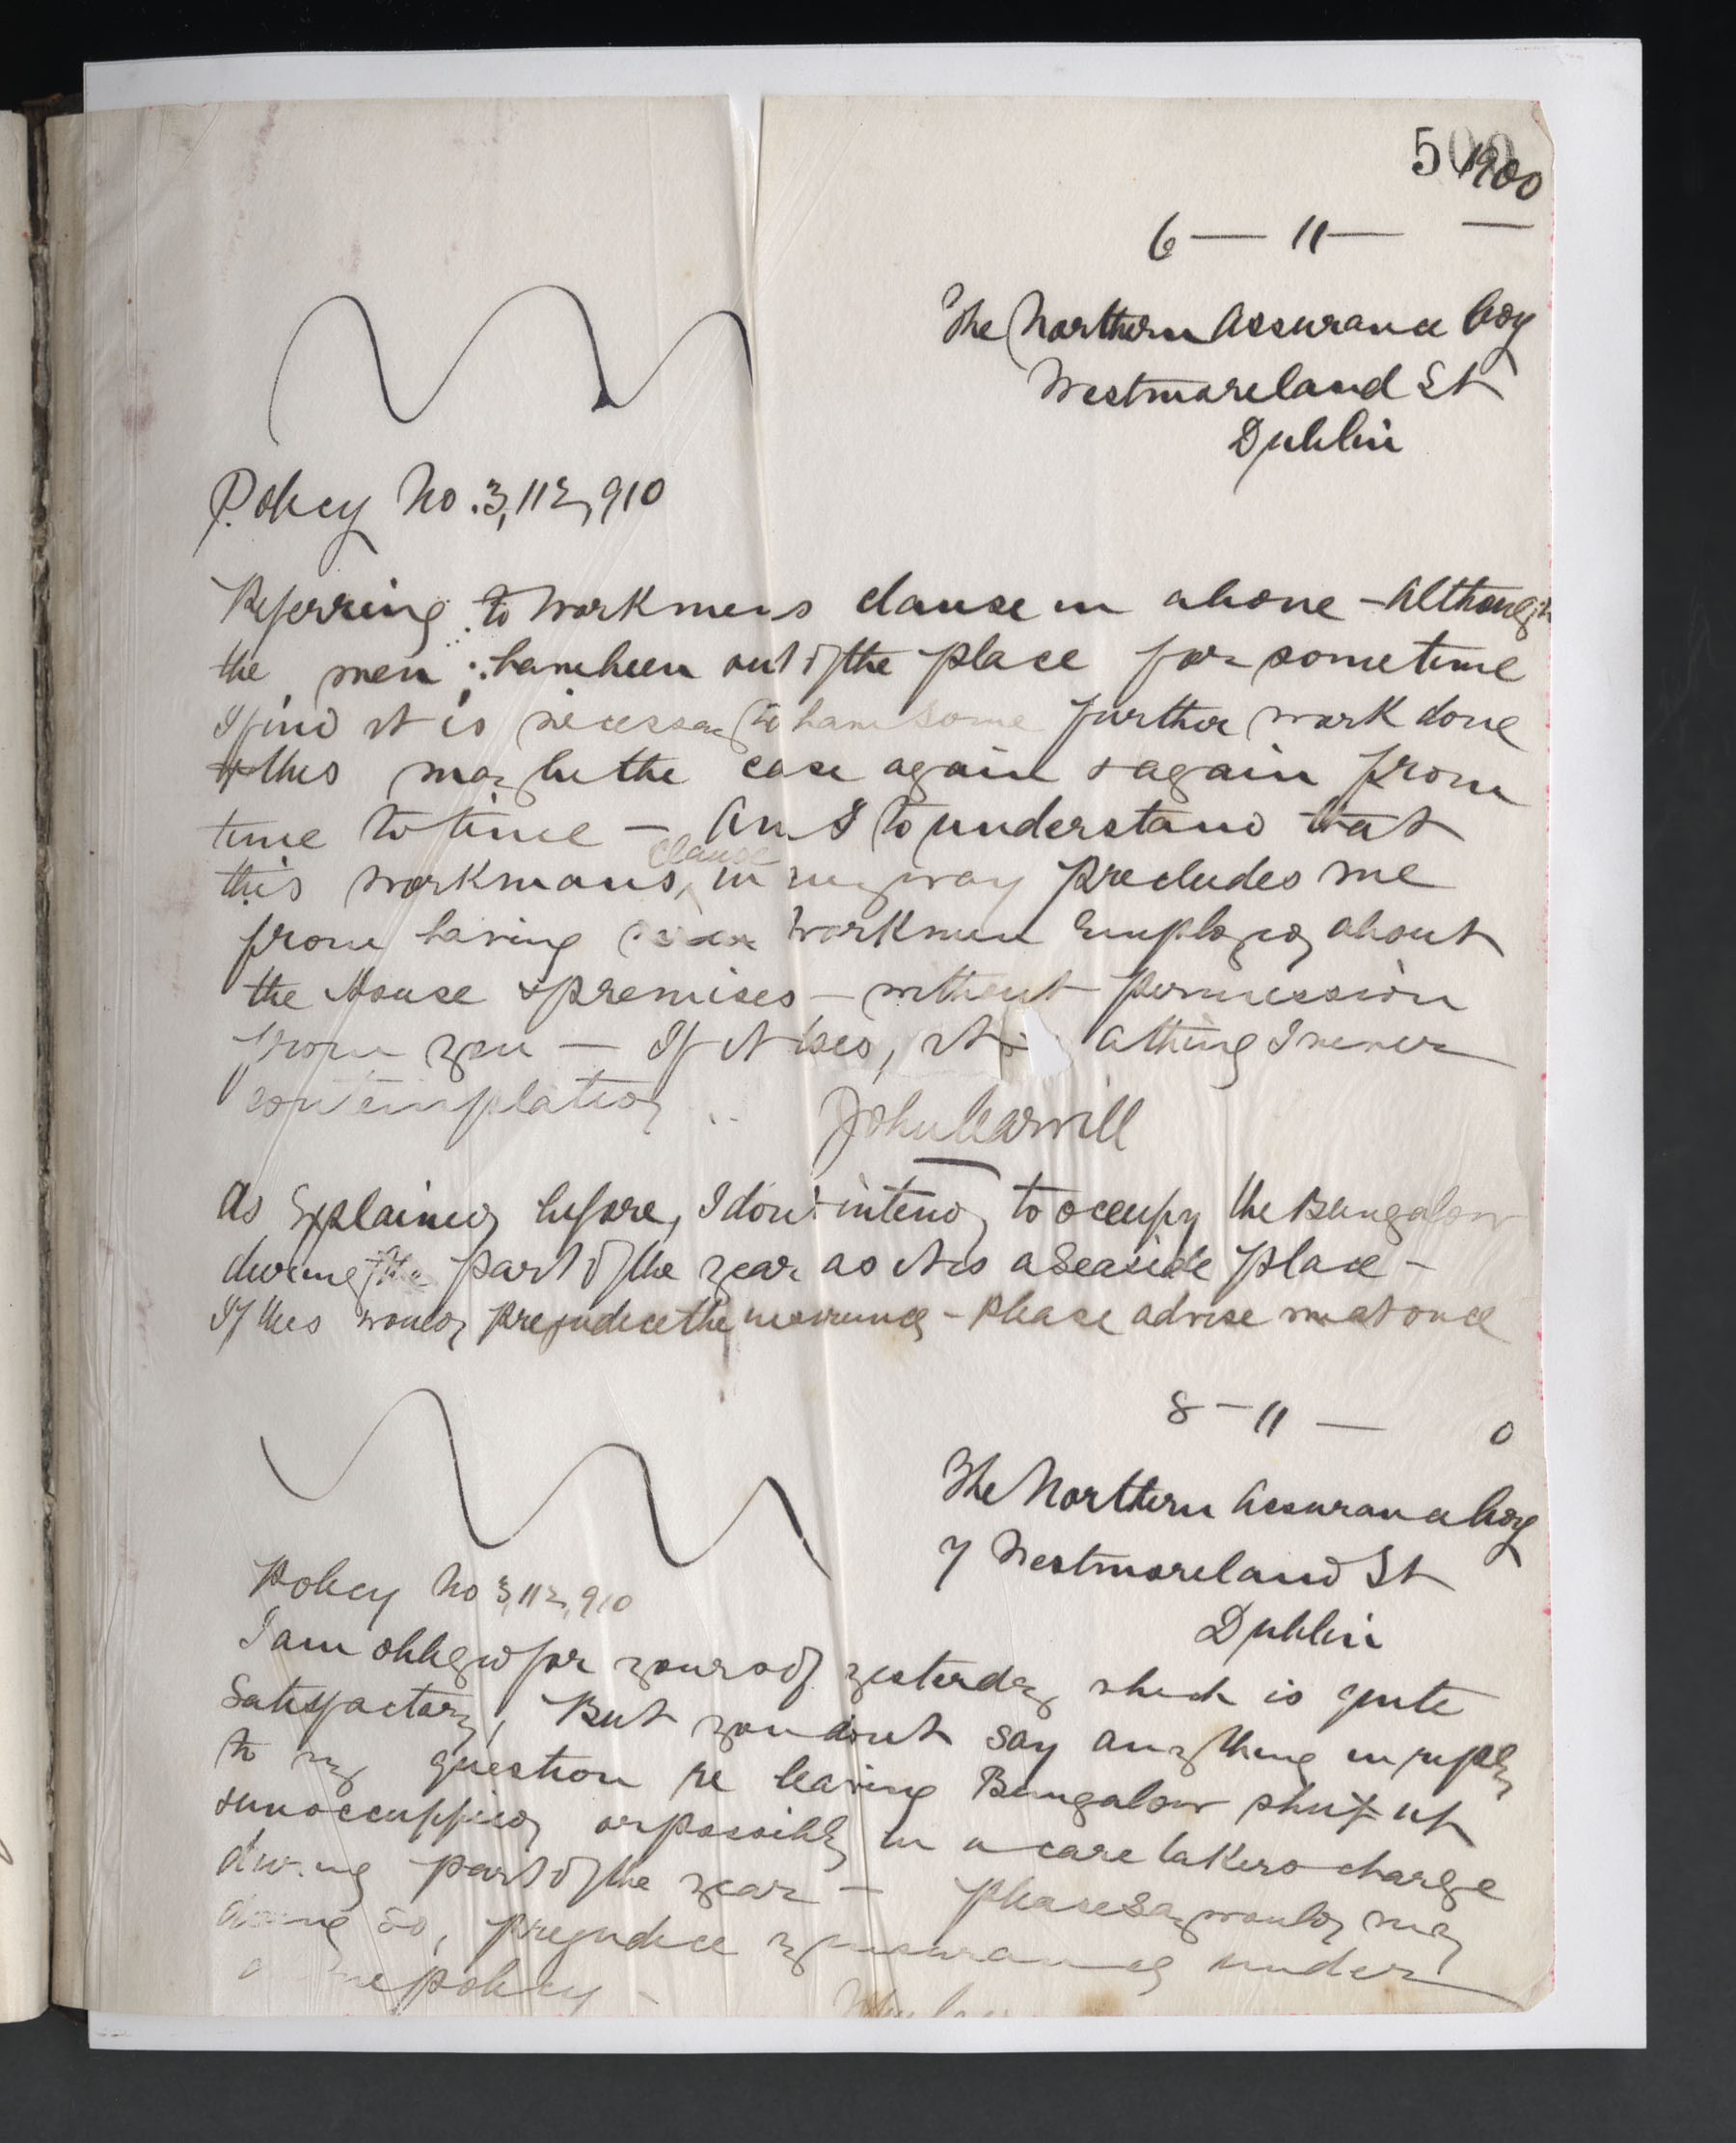 500
1900
6 — 11 —
The Northern Assurance Coy
Westmoreland St
Dublin
Policy No. 3,112,910
Referring to Workmens clause in above - Although
the men have been out of the place for sometime
I find it is necessary to have some further work done
& this may be the case again & again from
time to time — Am I to understand that
this workmans clause in any way precludes me
from having workmen employed about
the House & premises — without permission
from you — If it does, it is a thing I never
contemplated
John Carvill
As Explained before, I dont intend to occupy the Bungalow
during the part of the year as it is a Seaside place -
If this would prejudice the insurance - Please advise me at once
8 - 11 — 0
The Northern Assurance Coy
7 Westmoreland St
Dublin
Policy No 3,112,910
I am obliged for yours of yesterday which is quite
Satisfactory, But you dont say anything in reply
to my question re leaving Bungalow shut up
& unoccuppied or possibly in a care takers charge
during part of the year — Please say would my
doing so, prejudice my insurance under
above policy -